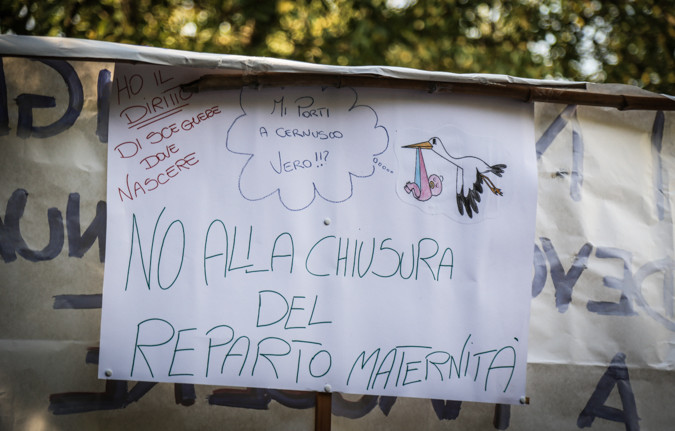 HO IL
DIRITTO
DI SCEGLIERE
DOVE
NASCERE
MI PORTI
A CERNUSCO
VERO!!?
NO ALLA CHIUSURA
DEL
REPARTO MATERNITÀ